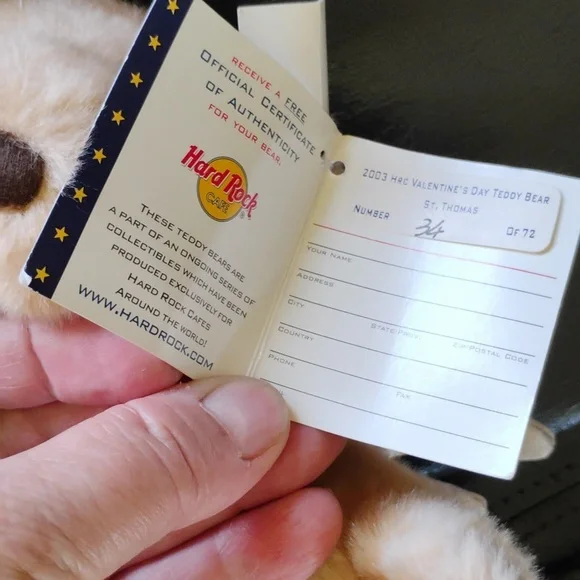 RECEIVE A FREE
OFFICIAL CERTIFICATE
OF AUTHENTICITY
FOR YOUR BEAR.
Hard Rock
CAFE
®
THESE TEDDY BEARS ARE
A PART OF AN ONGOING SERIES OF
COLLECTIBLES WHICH HAVE BEEN
PRODUCED EXCLUSIVELY FOR
HARD ROCK CAFES
AROUND THE WORLD!
WWW.HARDROCK.COM
2003 HRC VALENTINE'S DAY TEDDY BEAR
ST. THOMAS
NUMBER 34 OF 72
YOUR NAME
ADDRESS
CITY STATE/PROV. ZIP/POSTAL CODE
COUNTRY
PHONE FAX